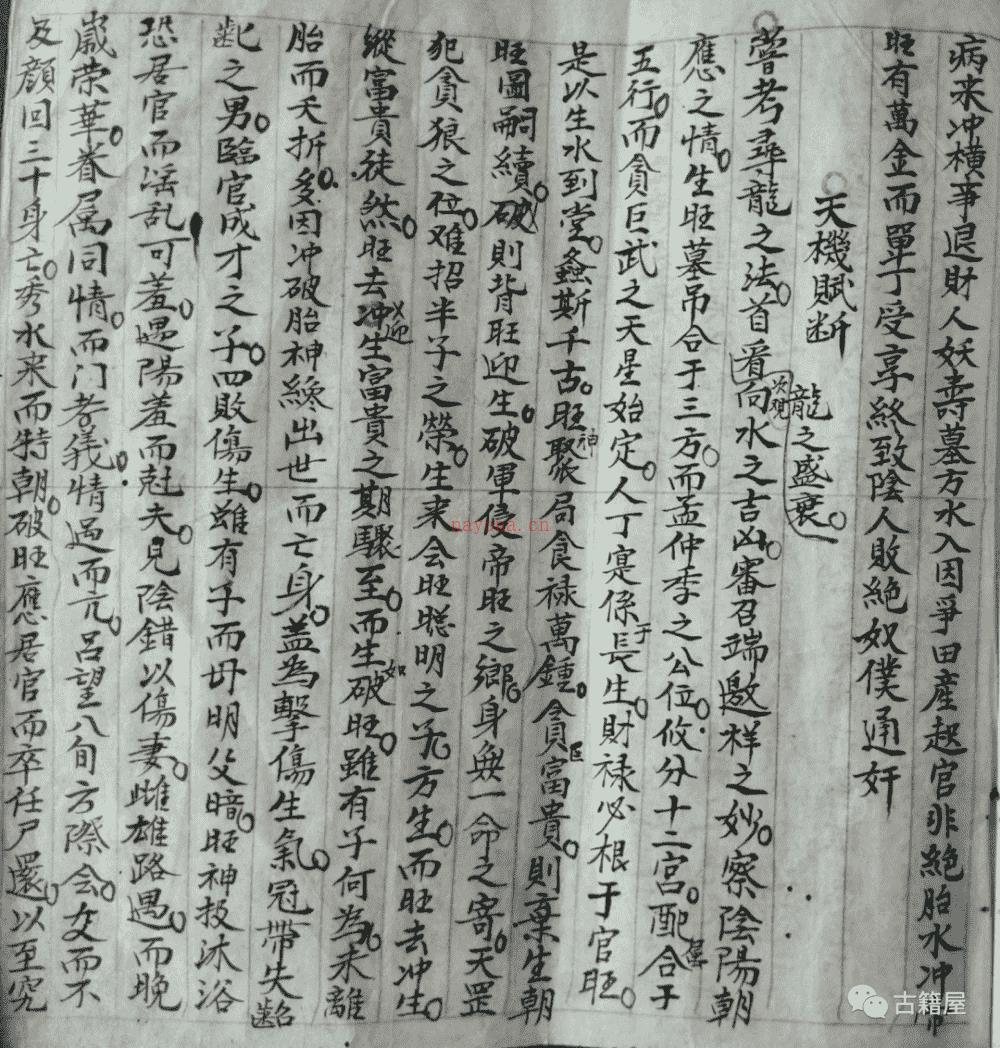 病来冲横事退財人妖壽墓方水入因爭田產起官非絕胎水冲帝
旺有萬金而單丁受享終致陰人敗絕奴僕通奸
天機賦断
嘗考尋龍之法。首看龍之盛衰。次观向水之吉凶。審召端邀样之妙。察陰陽朝
應之情。生旺墓吊合于三方。而孟仲季之公位。攸分十二宮。配合于
五行。而貪巨武之天星始定。人丁寔係于長生。財禄必根于官旺。
是以生水到堂。螽斯千古。旺神聚局食禄萬鍾。貪巨富貴。則棄生朝
旺圖嗣續。破則背旺迎生。破軍侵帝旺之鄉。身無一命之寄。天罡
犯貪狼之位。难招半子之榮。生来会旺聪明之子方生。而旺去冲生。
縱富貴徒然。旺去冲生富貴之期驟至。而生如破旺。雖有子何為。未離
胎而夭折。多因冲破胎神。纔出世而亡身。盖為擊傷生氣。冠帶失齠
齔之男。臨官成才之子。四敗傷生。雖有子而母明父暗。旺神投沐浴
恐居官而淫乱可羞。遇陽羞而尅夫。見陰錯以傷妻。雌雄路遇。而晚
嵗荣華。眷属同情。而门孝義。情过而亢。呂望八旬方際会。交而不
及顔回三十身亡。秀水来而特朝。破旺應居官而卒任尸還。以至究
nayona.cn
古籍屋